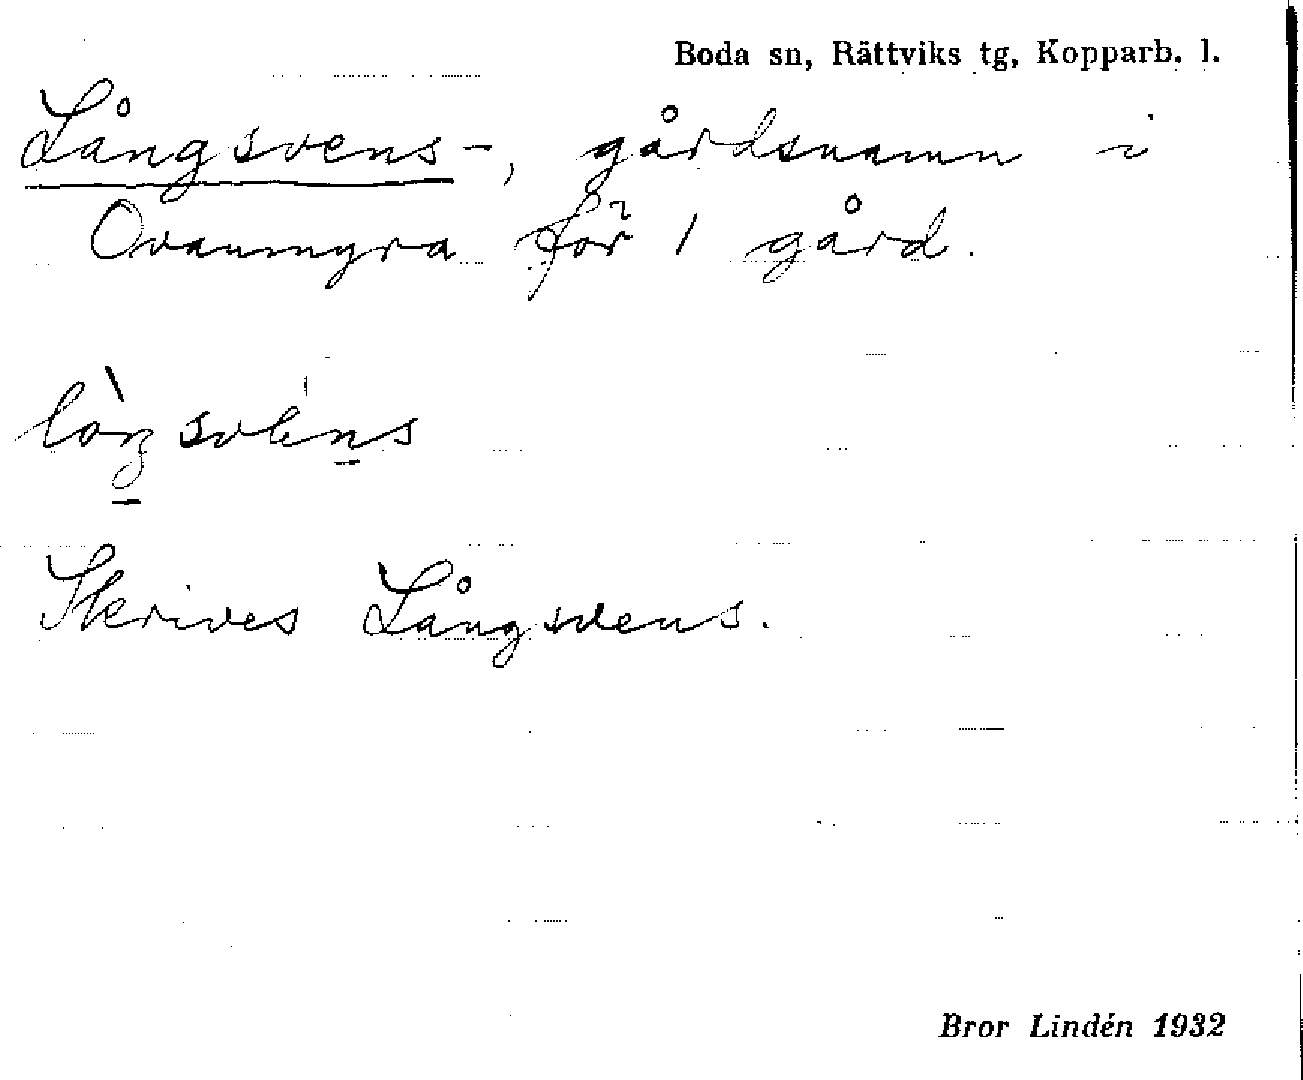 Boda sn, Rättviks tg, Kopparb. l.
Långsvens-, gårdsnamn i
Ovanmyra för 1 gård.
Skrives Långsvens.
Bror Lindén 1932